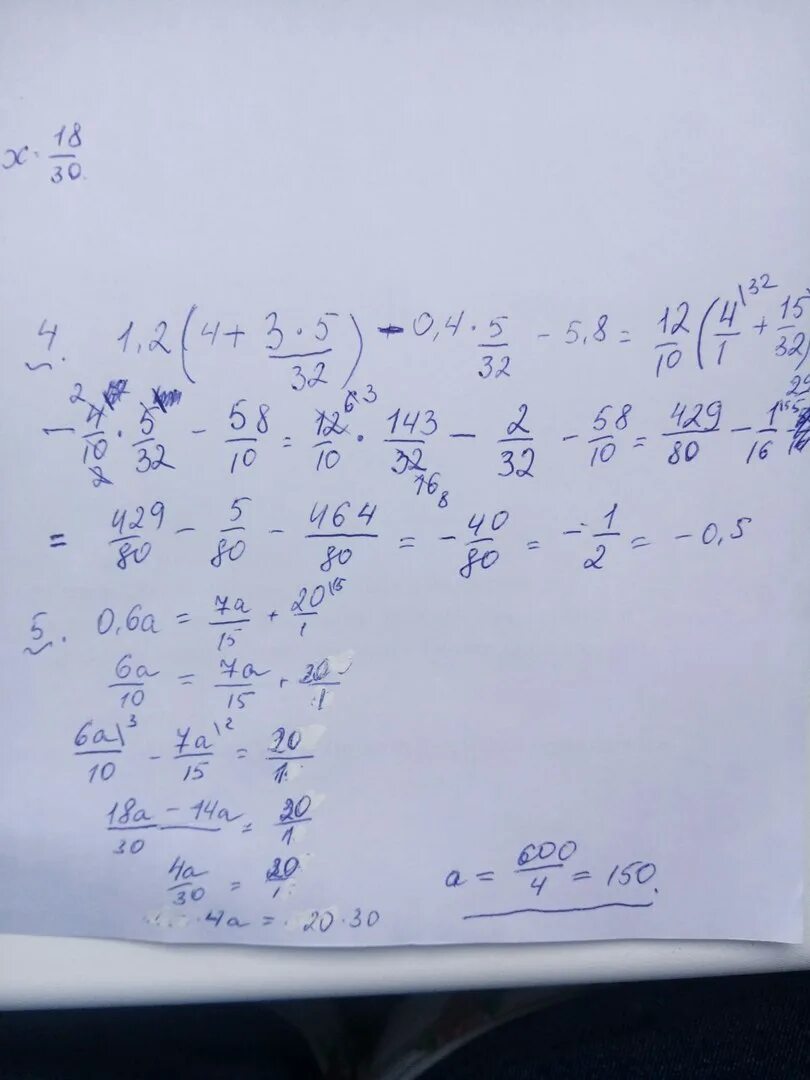 x · 18/30.
4. 1,2(4+ 3·5/32) - 0,4 · 5/32 - 5,8 = 12/10 (4/1 \32 + 15/32)
- 4/10 · 5/32 - 58/10 = 12/10 · 143/32 - 2/32 - 58/10 = 429/80 - 1/16
= 429/80 - 5/80 - 464/80 = - 40/80 = - 1/2 = - 0,5
5. 0,6a = 7a/15 + 20/1 \15
6a/10 = 7a/15 + 20/1
6a/10 \3 - 7a/15 \2 = 20/1
18a - 14a/30 = 20/1
4a/30 = 20/1
4a = 20·30
a = 600/4 = 150.